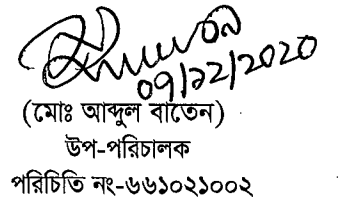 09/12/2020
(মোঃ আব্দুল বাতেন)
উপ-পরিচালক
পরিচিতি নং-৬৬১০২১০০২